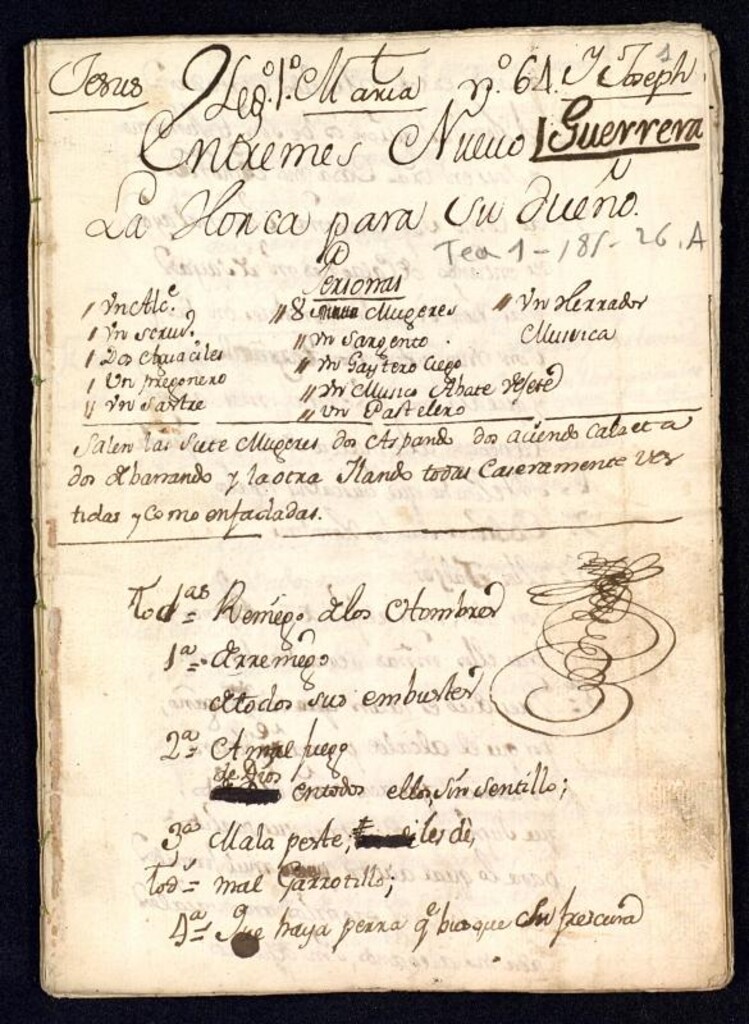 Jesus Leg.º 1.º Maria n.º 64. Y Joseph. 1
Entremes Nuevo Guerrera
La Honca para su dueño.
Tea 1-185-26, A
Personas
1 Vn Alc.e
1 Vn scriv.º
1 Dos Aguaciles
1 Un pregonero
11 Vn Sastre
11 8 Mugeres
11 Vn Sargento.
11 Vn Gaytero Ciego
11 Vn Musico Abate Vejete
11 Vn Pastelero
11 Vn Herrador
Musica
Salen las Siete Mugeres dos Aspando dos aciendo Calzeta
dos debarrando y la otra Ilando todas Caseramente ves
tidas y Como enfadadas.
Tod.as = Remiego delos Hombres
1.ª = Arremiego
de todos sus embustes
2.ª = A mal fuego
de Dios
en todos ellos, sin sentillo;
3.ª Mala peste, les dè,
Tod.s = mal Garrotillo;
4.ª = Que haya perra q.e busque su frescura